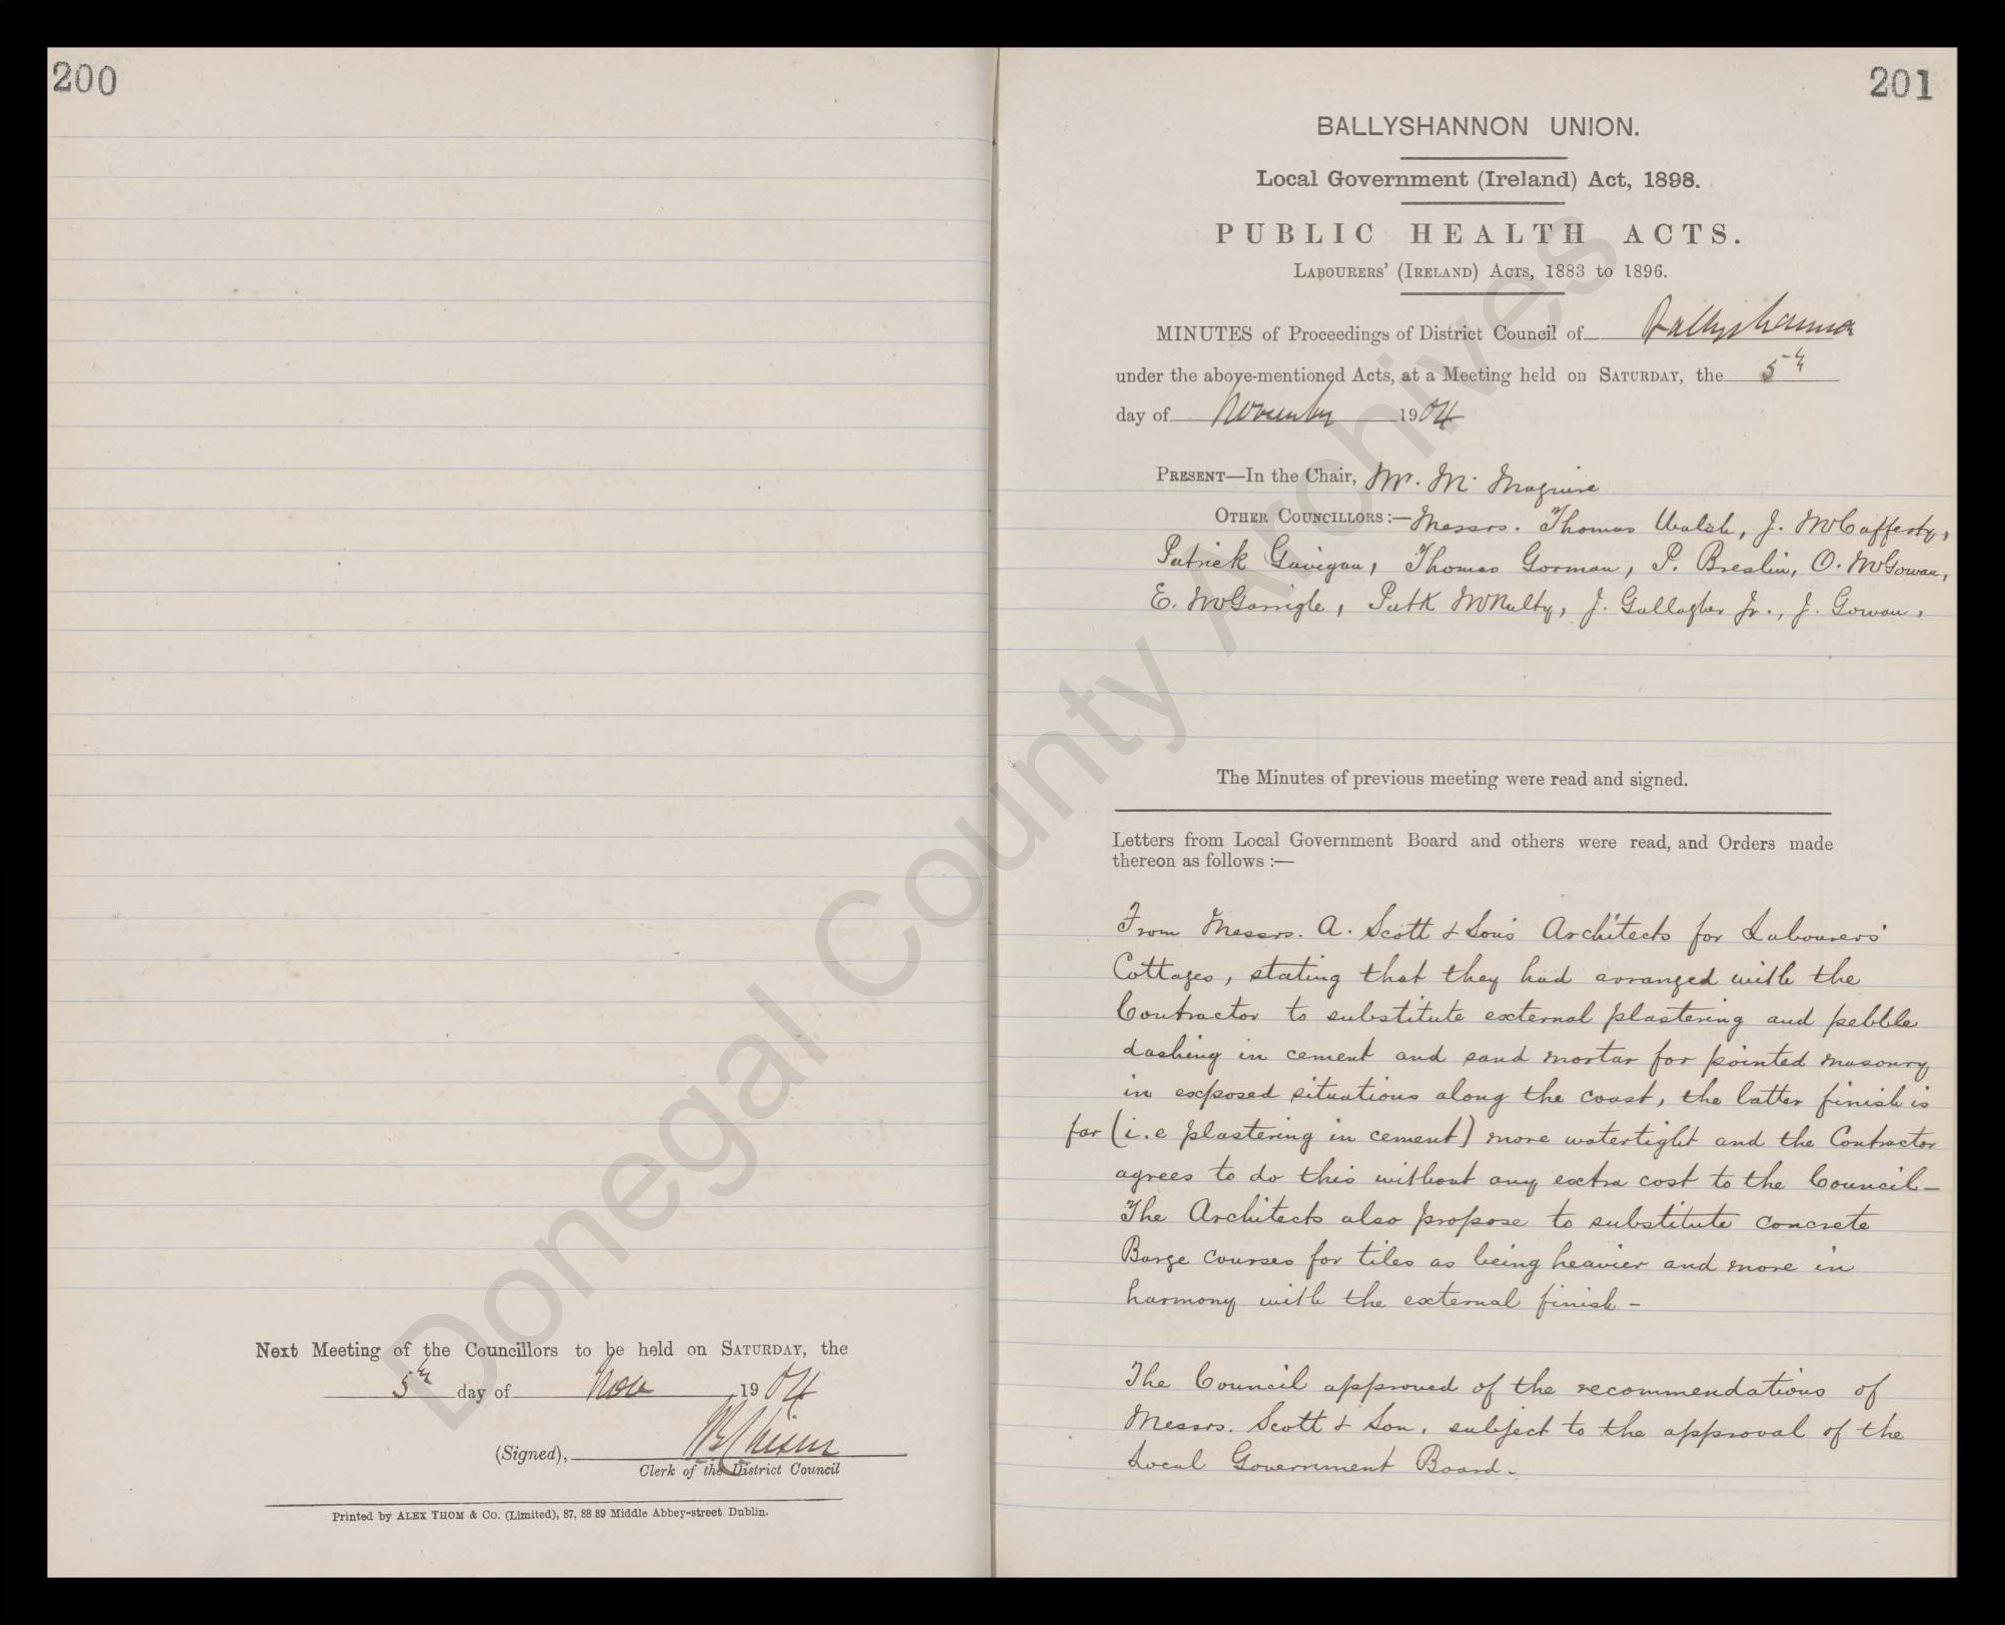 200
Next Meeting of the Councillors to be held on SATURDAY, the
5th day of Nov 1904
(Signed),
Clerk of the District Council
Printed by ALEX THOM & Co. (Limited), 87, 88 89 Middle Abbey-street Dublin.
201
BALLYSHANNON UNION.
Local Government (Ireland) Act, 1898.
PUBLIC HEALTH ACTS.
LABOURERS' (IRELAND) ACTS, 1883 to 1896.
MINUTES of Proceedings of District Council of Ballyshannon
under the above-mentioned Acts, at a Meeting held on SATURDAY, the 5th
day of November 1904
PRESENT—In the Chair, Mr. M. Maguire
OTHER COUNCILLORS:— Messrs. Thomas Walsh, J. McCafferty,
Patrick Gavigan, Thomas Gorman, P. Breslin, O. McGowan,
E. McGarrigle, Patk McNulty, J. Gallagher Jr., J. Gowan.
The Minutes of previous meeting were read and signed.
Letters from Local Government Board and others were read, and Orders made
thereon as follows :—
From Messrs. A. Scott & Sons Architects for Labourers'
Cottages, stating that they had arranged with the
Contractor to substitute external plastering and pebble
dashing in cement and sand mortar for pointed masonry
in exposed situations along the coast, the latter finish is
far (i.e plastering in cement) more watertight and the Contractor
agrees to do this without any extra cost to the Council-
The Architects also propose to substitute concrete
Barge courses for tiles as being heavier and more in
harmony with the external finish -
The Council approved of the recommendations of
Messrs. Scott & Son, subject to the approval of the
Local Government Board.
Donegal County Archives